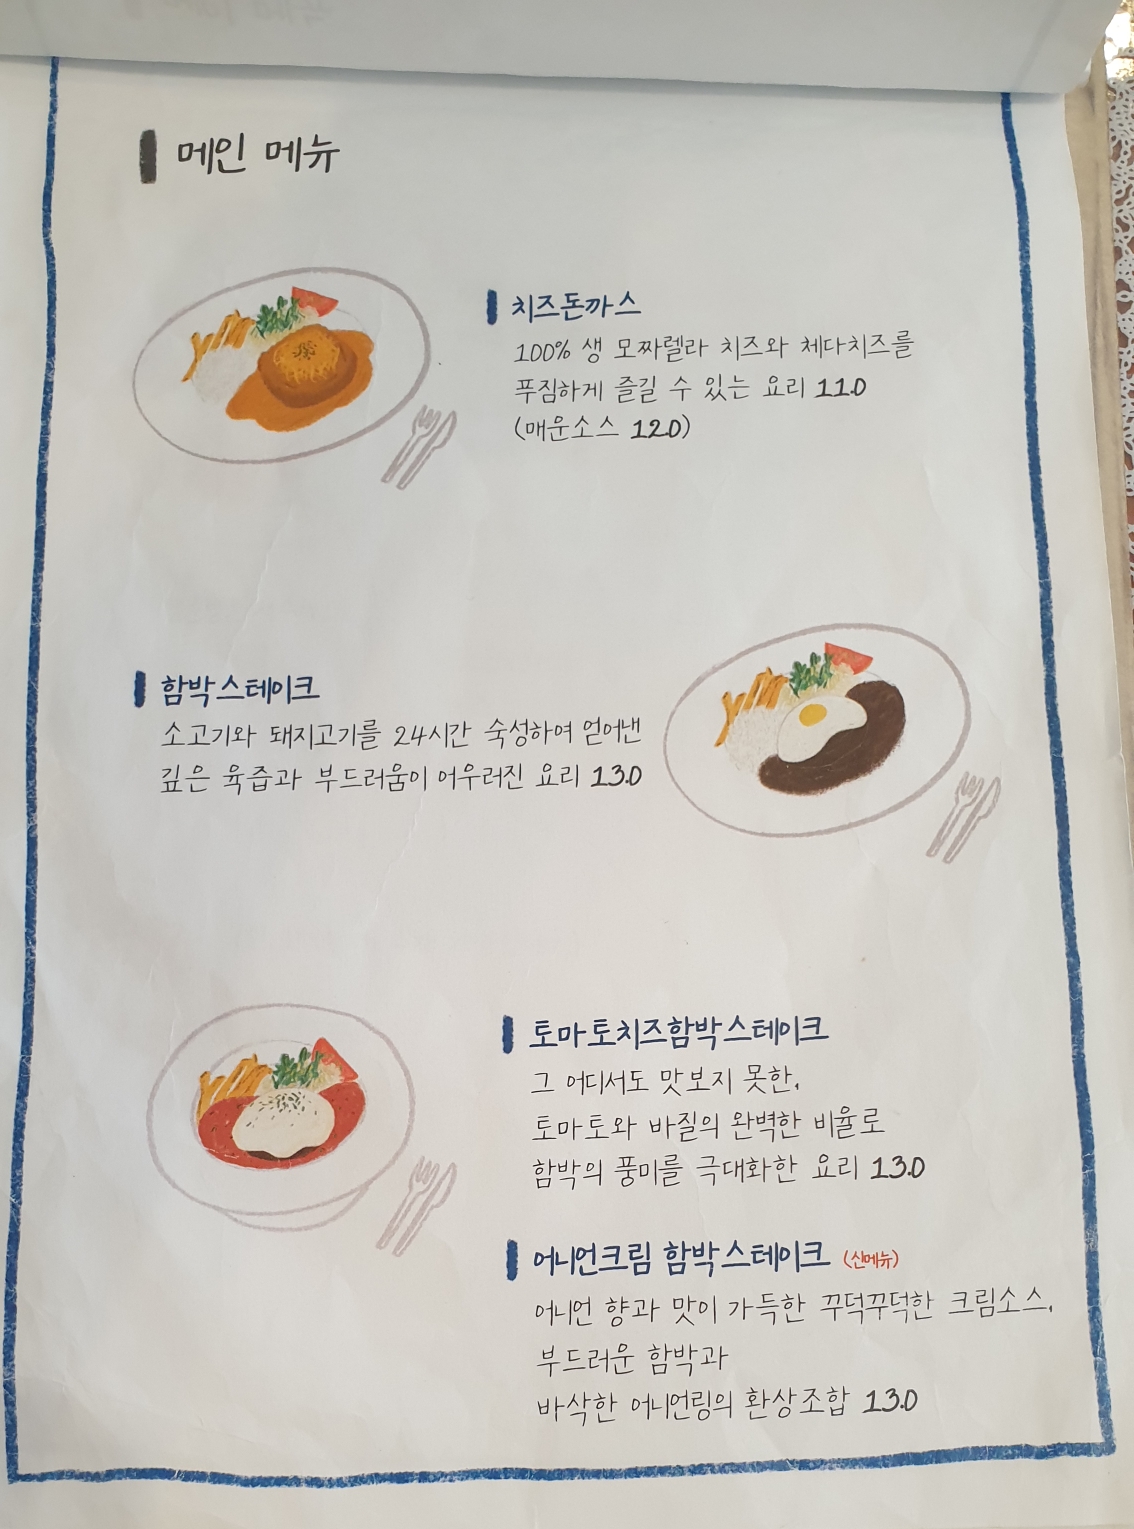 메인 메뉴
치즈돈까스
100% 생 모짜렐라 치즈와 체다치즈를
푸짐하게 즐길 수 있는 요리 11.0
(매운소스 12.0)
함박스테이크
소고기와 돼지고기를 24시간 숙성하여 얻어낸
깊은 육즙과 부드러움이 어우러진 요리 13.0
토마토치즈함박스테이크
그 어디서도 맛보지 못한,
토마토와 바질의 완벽한 비율로
함박의 풍미를 극대화한 요리 13.0
어니언크림 함박스테이크 (신메뉴)
어니언 향과 맛이 가득한 꾸덕꾸덕한 크림소스,
부드러운 함박과
바삭한 어니언링의 환상조합 13.0